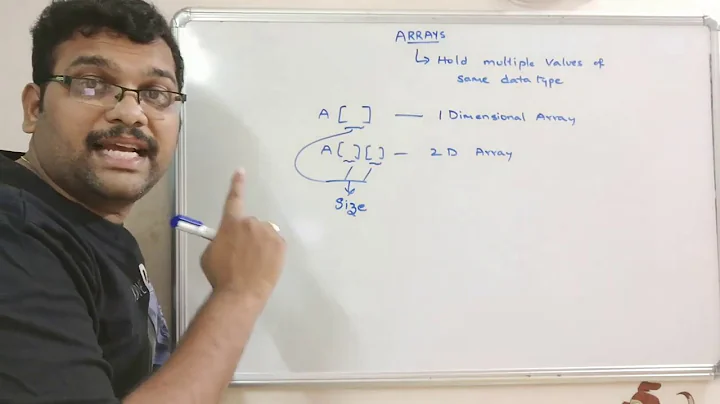 ARRAYS
↳ Hold multiple values of
same datatype
A [ ] — 1 Dimensional Array
A [ ] [ ] — 2D Array
Size